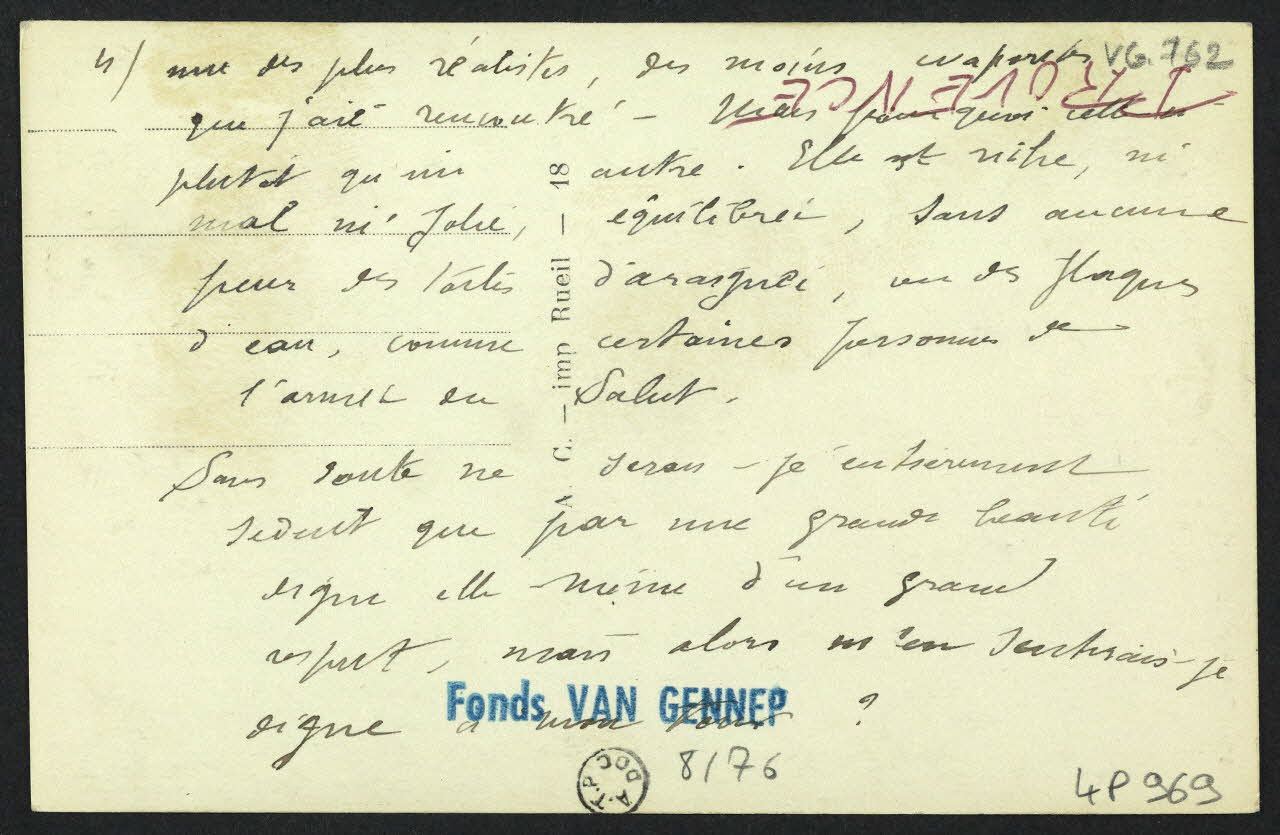 4) une des plus réalistes, des moins evaporées VG.762
PROVENCE
que j'aie rencontré – Mais pourquoi celle-ci
plutôt qu'une autre. Elle est riche, ni
mal ni Jolie, équilibrée, sans aucune
peur des toiles d'araignée, ou des flaques
d'eau, comme certaines personnes de
l'armée du Salut.
Sans doute ne serais-je entièrement
séduit que par une grande beauté
digne elle-même d'un grand
respect, mais alors m'en sentirais-je
digne à mon tour ?
A. C. — imp Rueil — 18
Fonds VAN GENNEP
A.T.P. DOC
8/76
4P 969